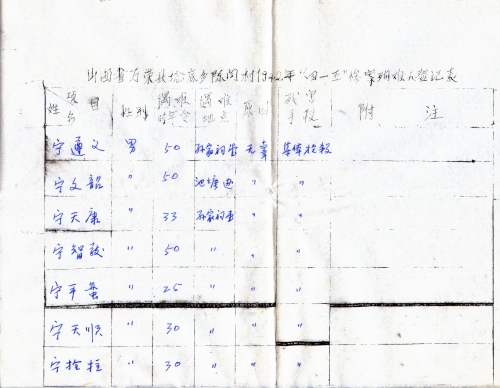 山西省万荣县 乡陈阎村1942年“四一五”惨案殉难人登记表
项目 姓名 性别 遇难时年令 遇难地点 原因 戕害手段 附注
宁遵文 男 50 孙家祠堂 无辜 集体枪杀
宁文韶 〃 50 池塘边 〃 〃
宁天康 〃 33 孙家祠堂 〃 〃
宁智 〃 50 〃 〃 〃
宁平 〃 25 〃 〃 〃
宁天顺 〃 30 〃 〃 〃
宁拴柱 〃 30 〃 〃 〃